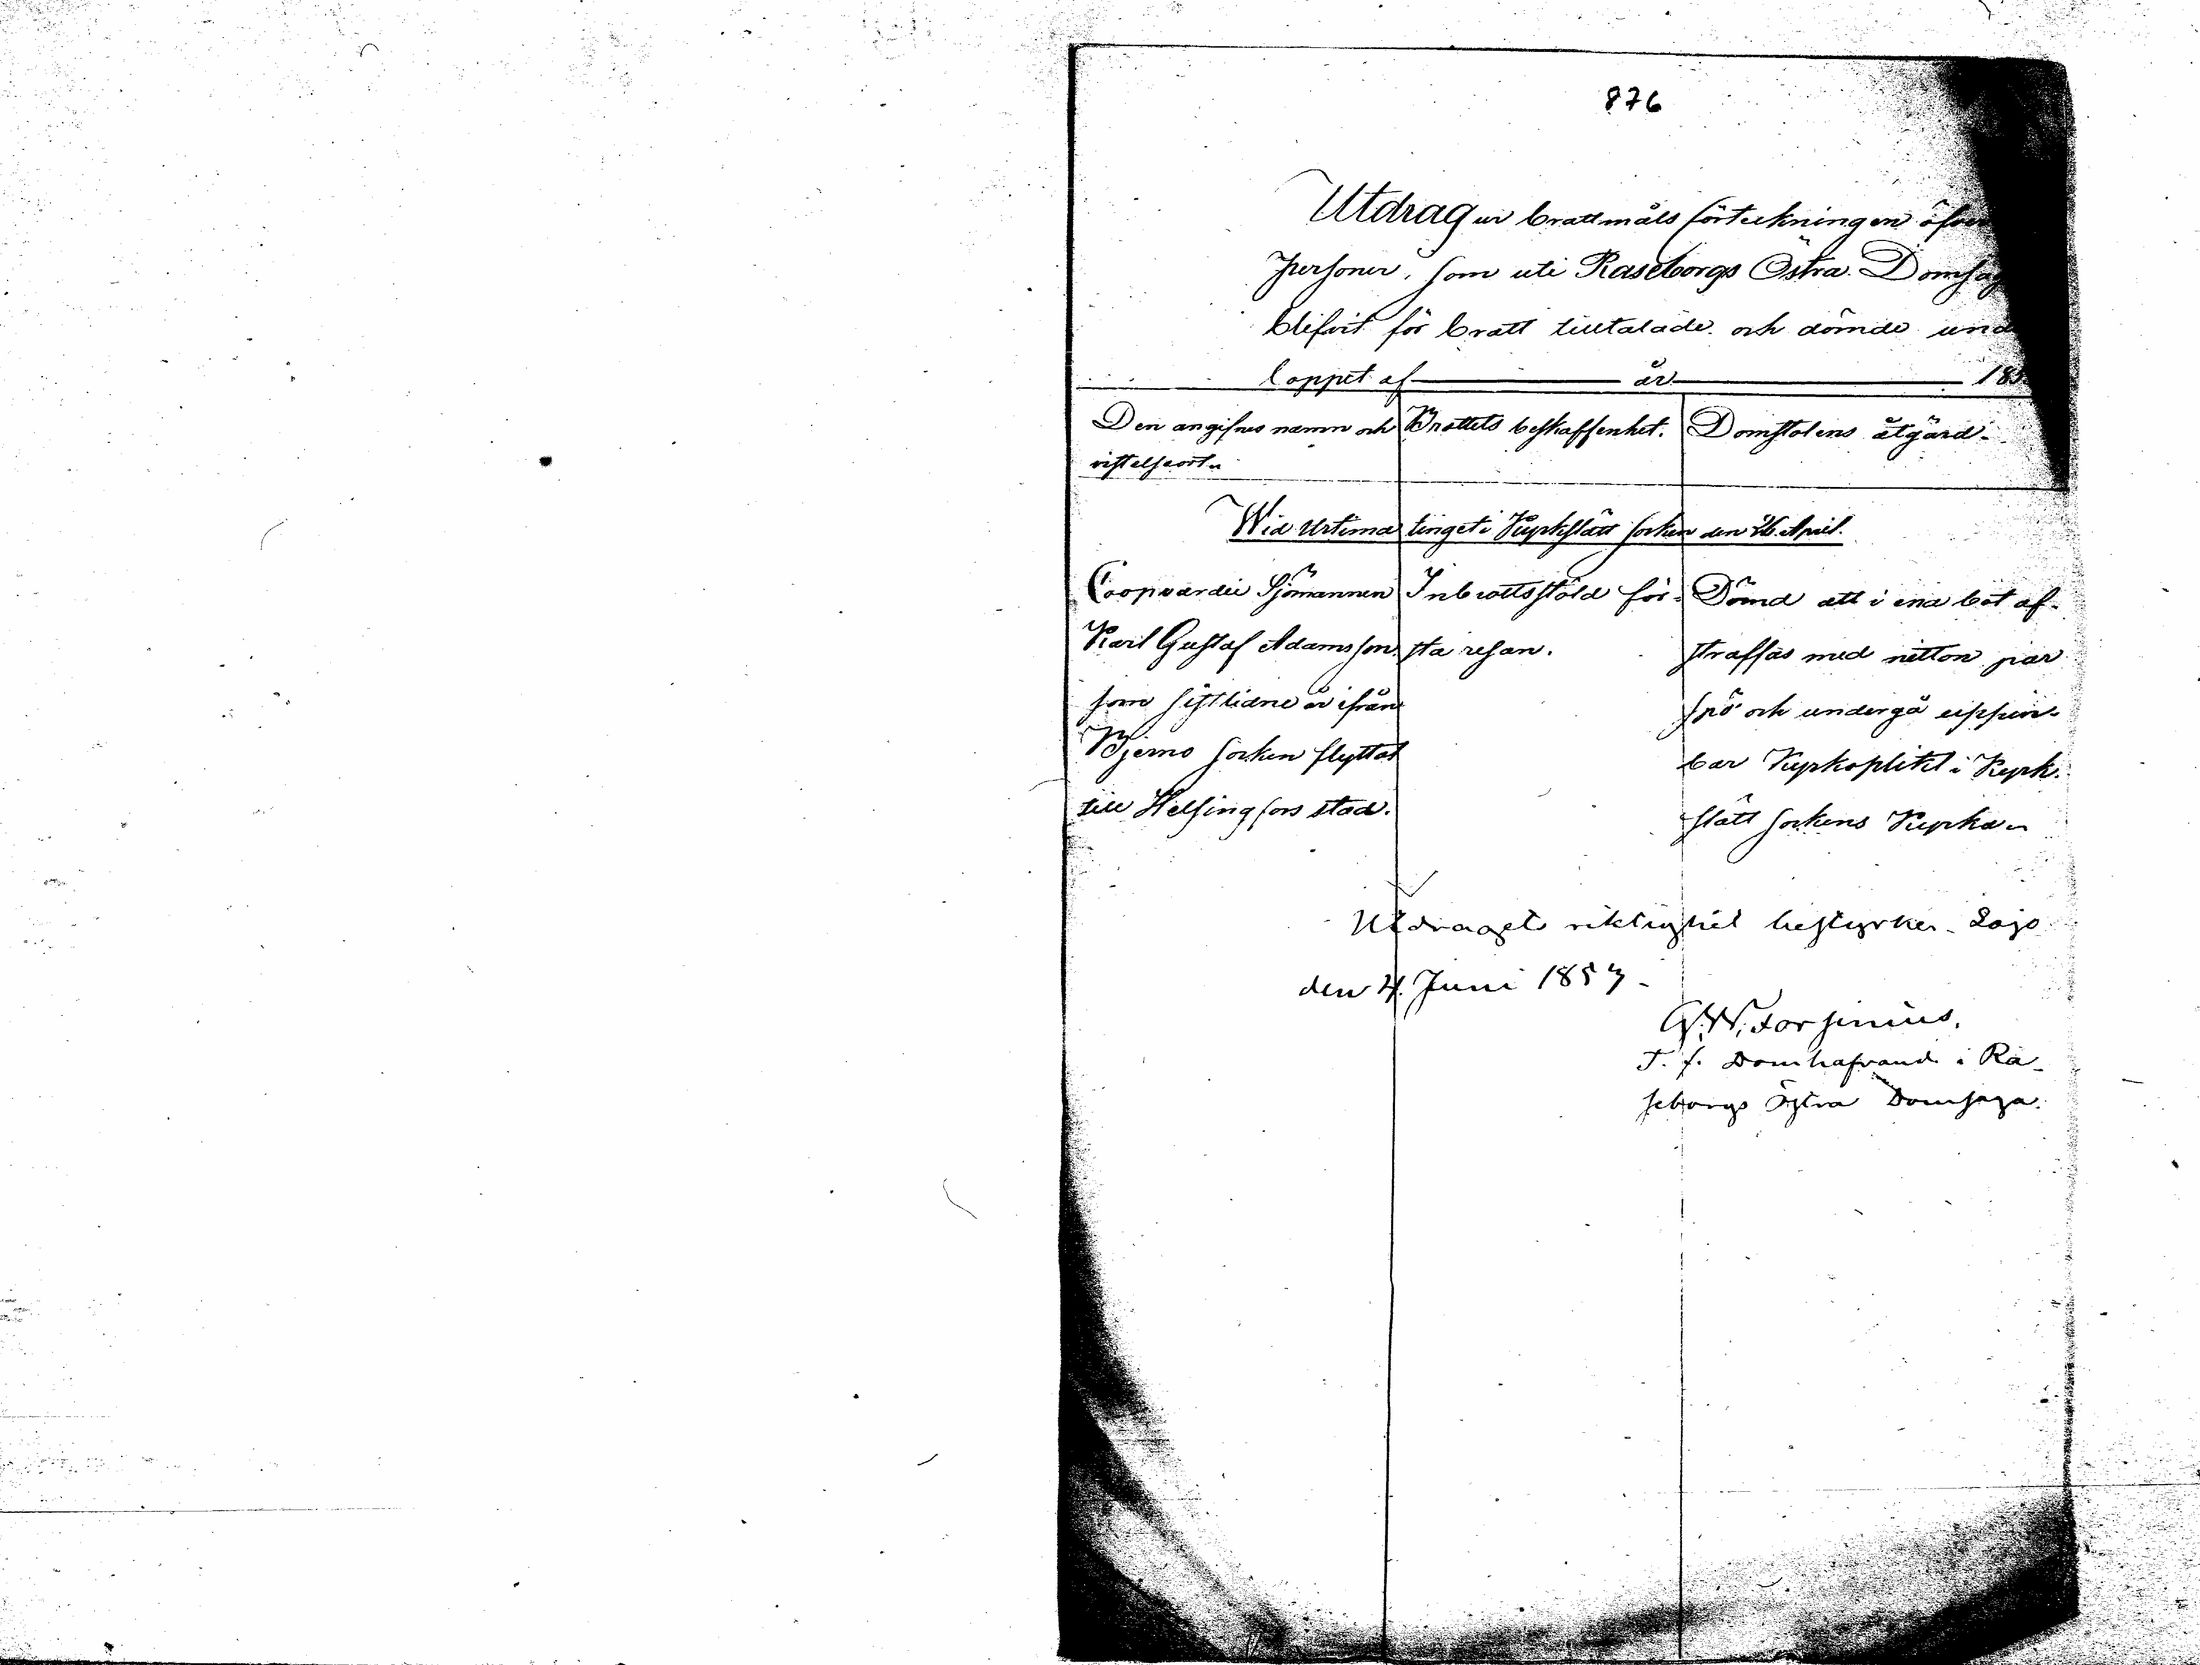 876
Utdrag ur brottmåls förteckningen öfver
Personer, som uti Raseborgs Östra Domsag
blifvit för brott tilltalade och dömde und
loppet af år 185
Den angifnes namn och Brottets beskaffenhet. Domstolens åtgärd.
vistelseort.
Wid Urtima tinget i Kyrkslätt socken den 26 April.
Coopvardie Sjömannen Inbrottsstöld för- Dömd att i ena bot af-
Karl Gustaf Adamsson sta resan. straffas med nitton par
som sistlidne år ifrån spö och undergå uppen-
Bjerno socken flyttat bar Kyrkoplikt i Kyrk-
till Helsingfors stad. slätt sockens Kyrka.
Utdragets riktighet bestyrker. Lojo
den 4. Juni 1857.
G.W. Forsenius,
T. f. Domhafvande i Ra-
seborgs Östra Domsaga.